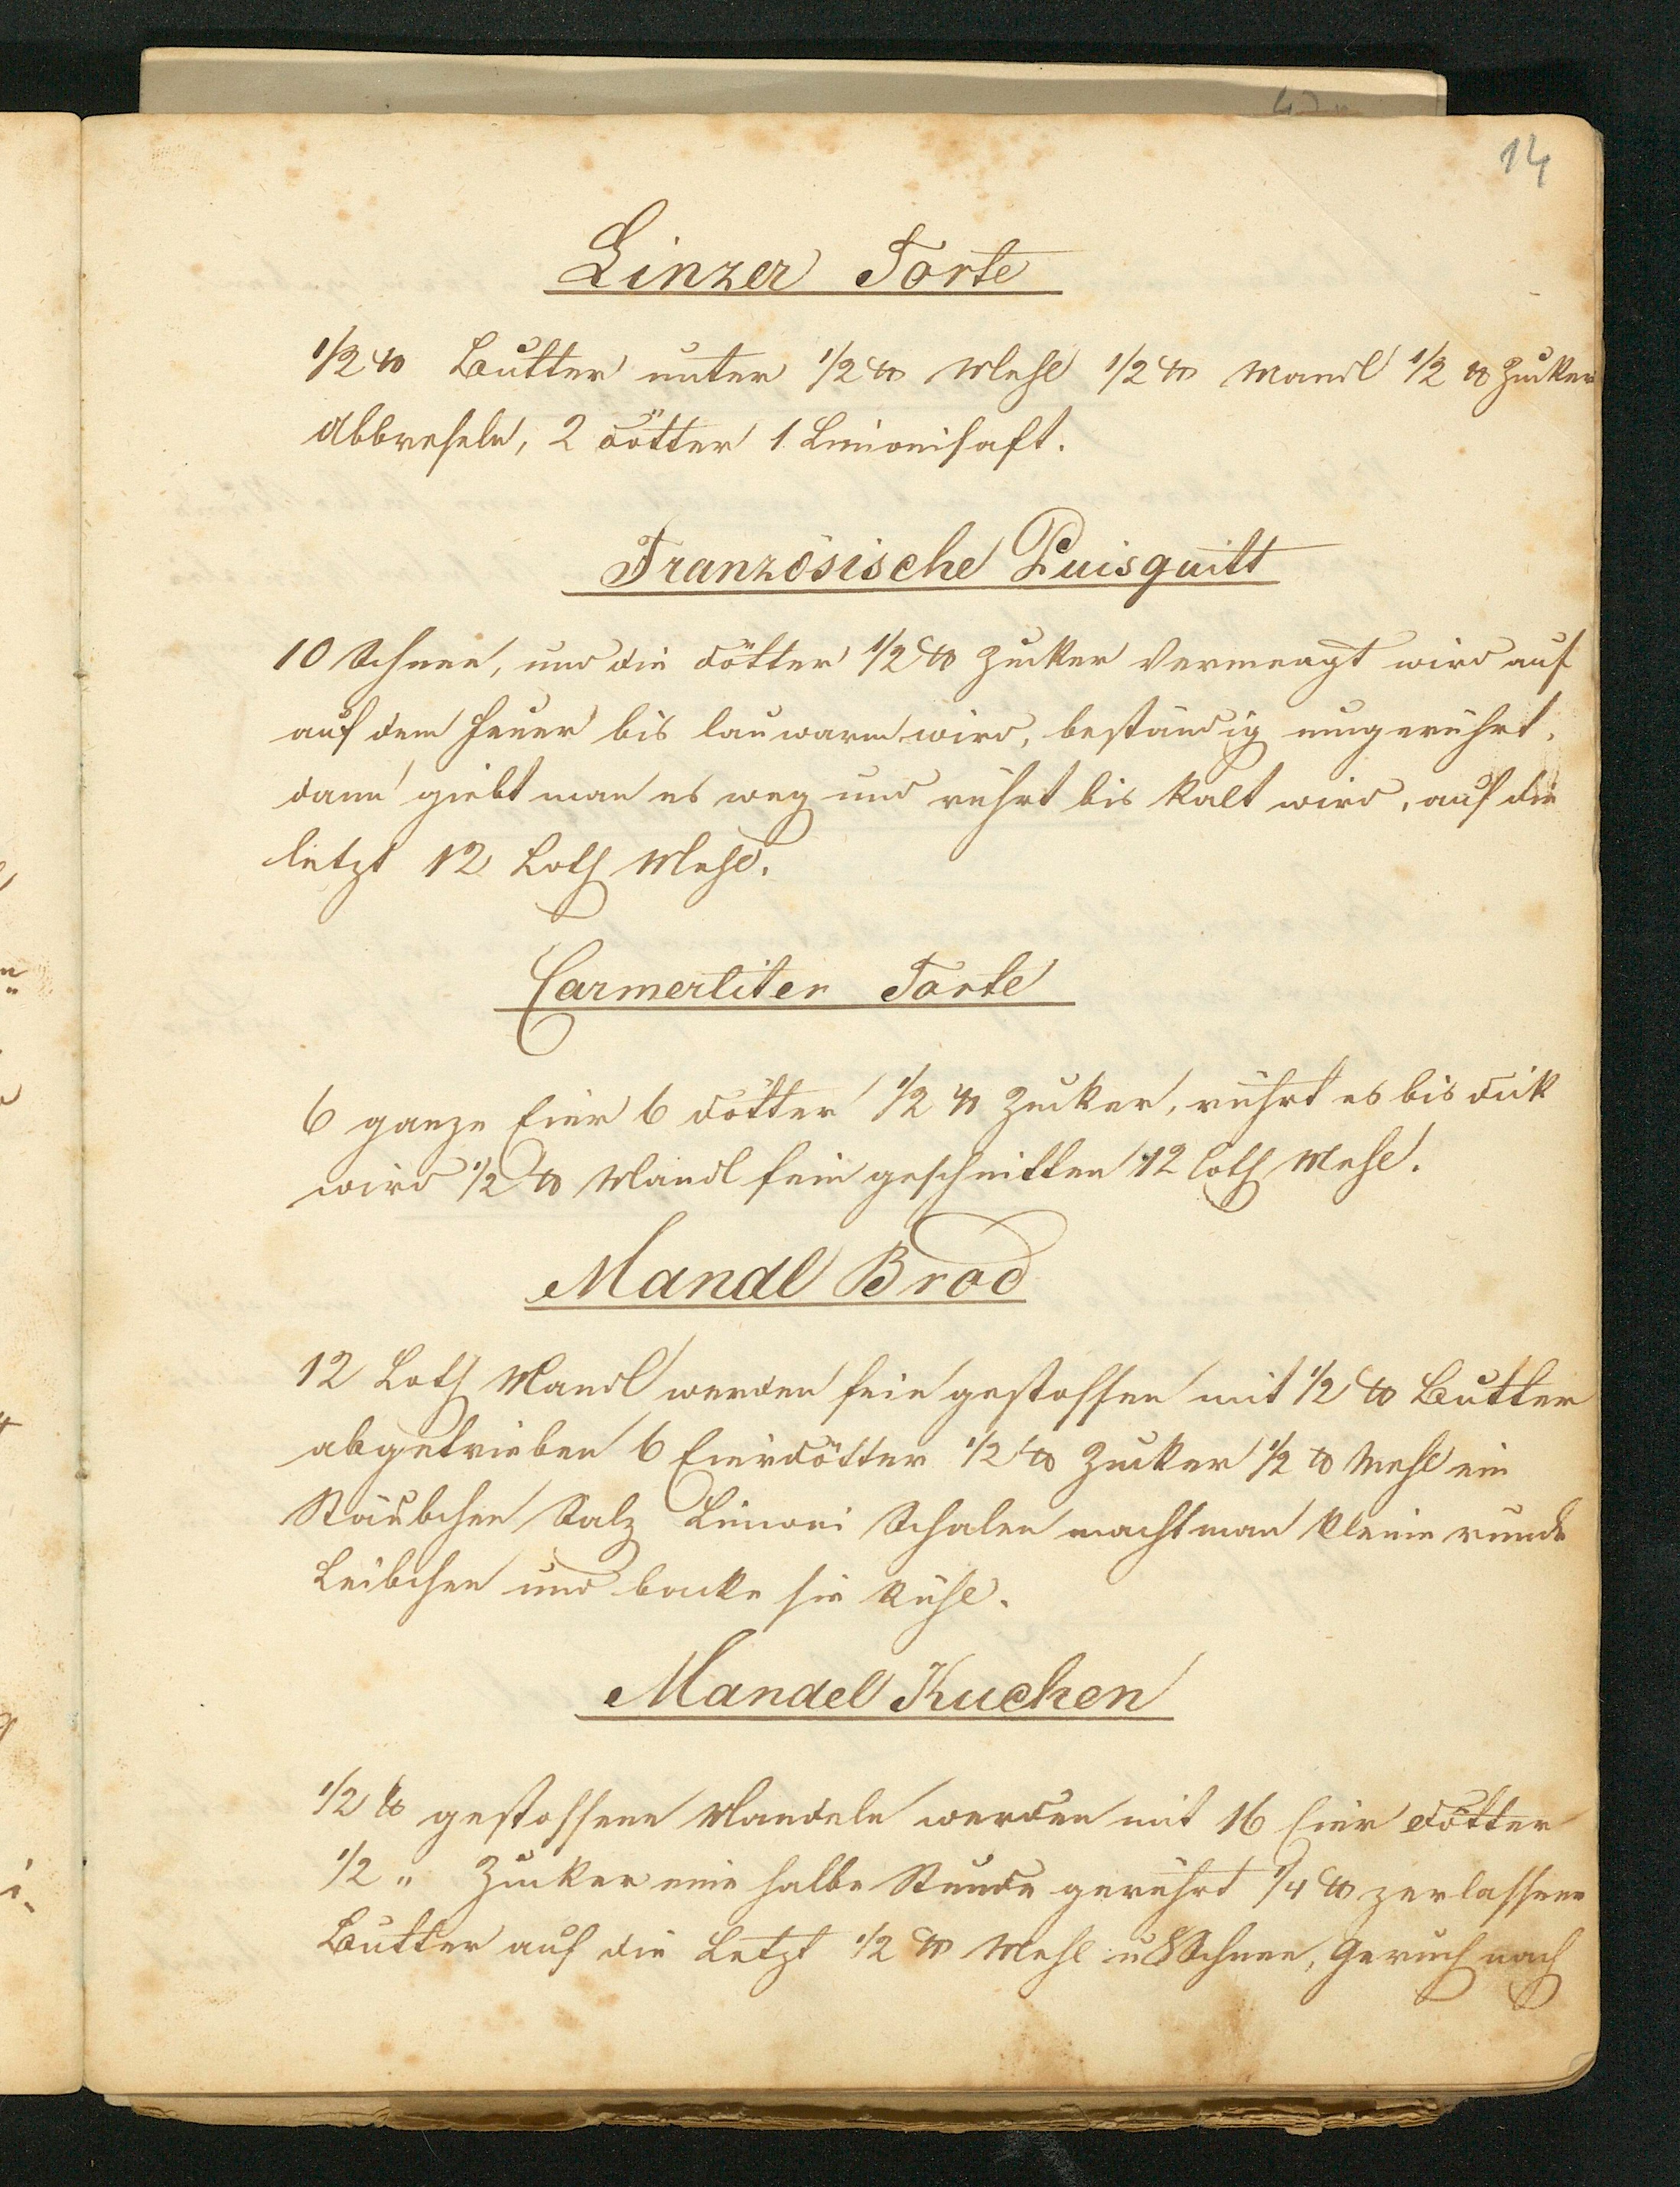 14
Linzer Torte
1/2 ℔ Butter unter 1/2 ℔ Mehl 1/2 ℔ Mandl 1/2 ℔ Zucker
abbreseln, 2 Dötter 1 Limonisaft.
Französische Puisquitt
10 Schnee, und die Dötter 1/2 ℔ Zucker Vermengt wird auf
auf dem Feuer bis lauwarm wird, beständig umgerührt,
dann giebt man es weg und rührt bis kalt wird, auf die
letzt 12 Loth Mehl.
Carmerliter Torte
6 ganze Eier 6 Dötter 1/2 ℔ Zucker, rührt es bis dick
wird 1/2 ℔ Mandl fein geschnitten 12 Loth Mehl.
Mandl Brod
12 Loth Mandl werden fein gestossen mit 1/2 ℔ Butter
abgetrieben 6 Eierdötter 1/2 ℔ Zucker 1/2 ℔ Mehl ein
Stäubchen Salz Limoni Schalen macht man kleine runde
Leibchen und backe sie kühl.
Mandel Kuchen
1/2 ℔ gestossene Mandeln werden mit 16 Eier Dötter
1/2 „ Zucker eine halbe Stunde gerührt 1/4 ℔ zerlassene
Butter auf die Letzt 1/2 ℔ Mehl u 8 Schnee, Geruch nach